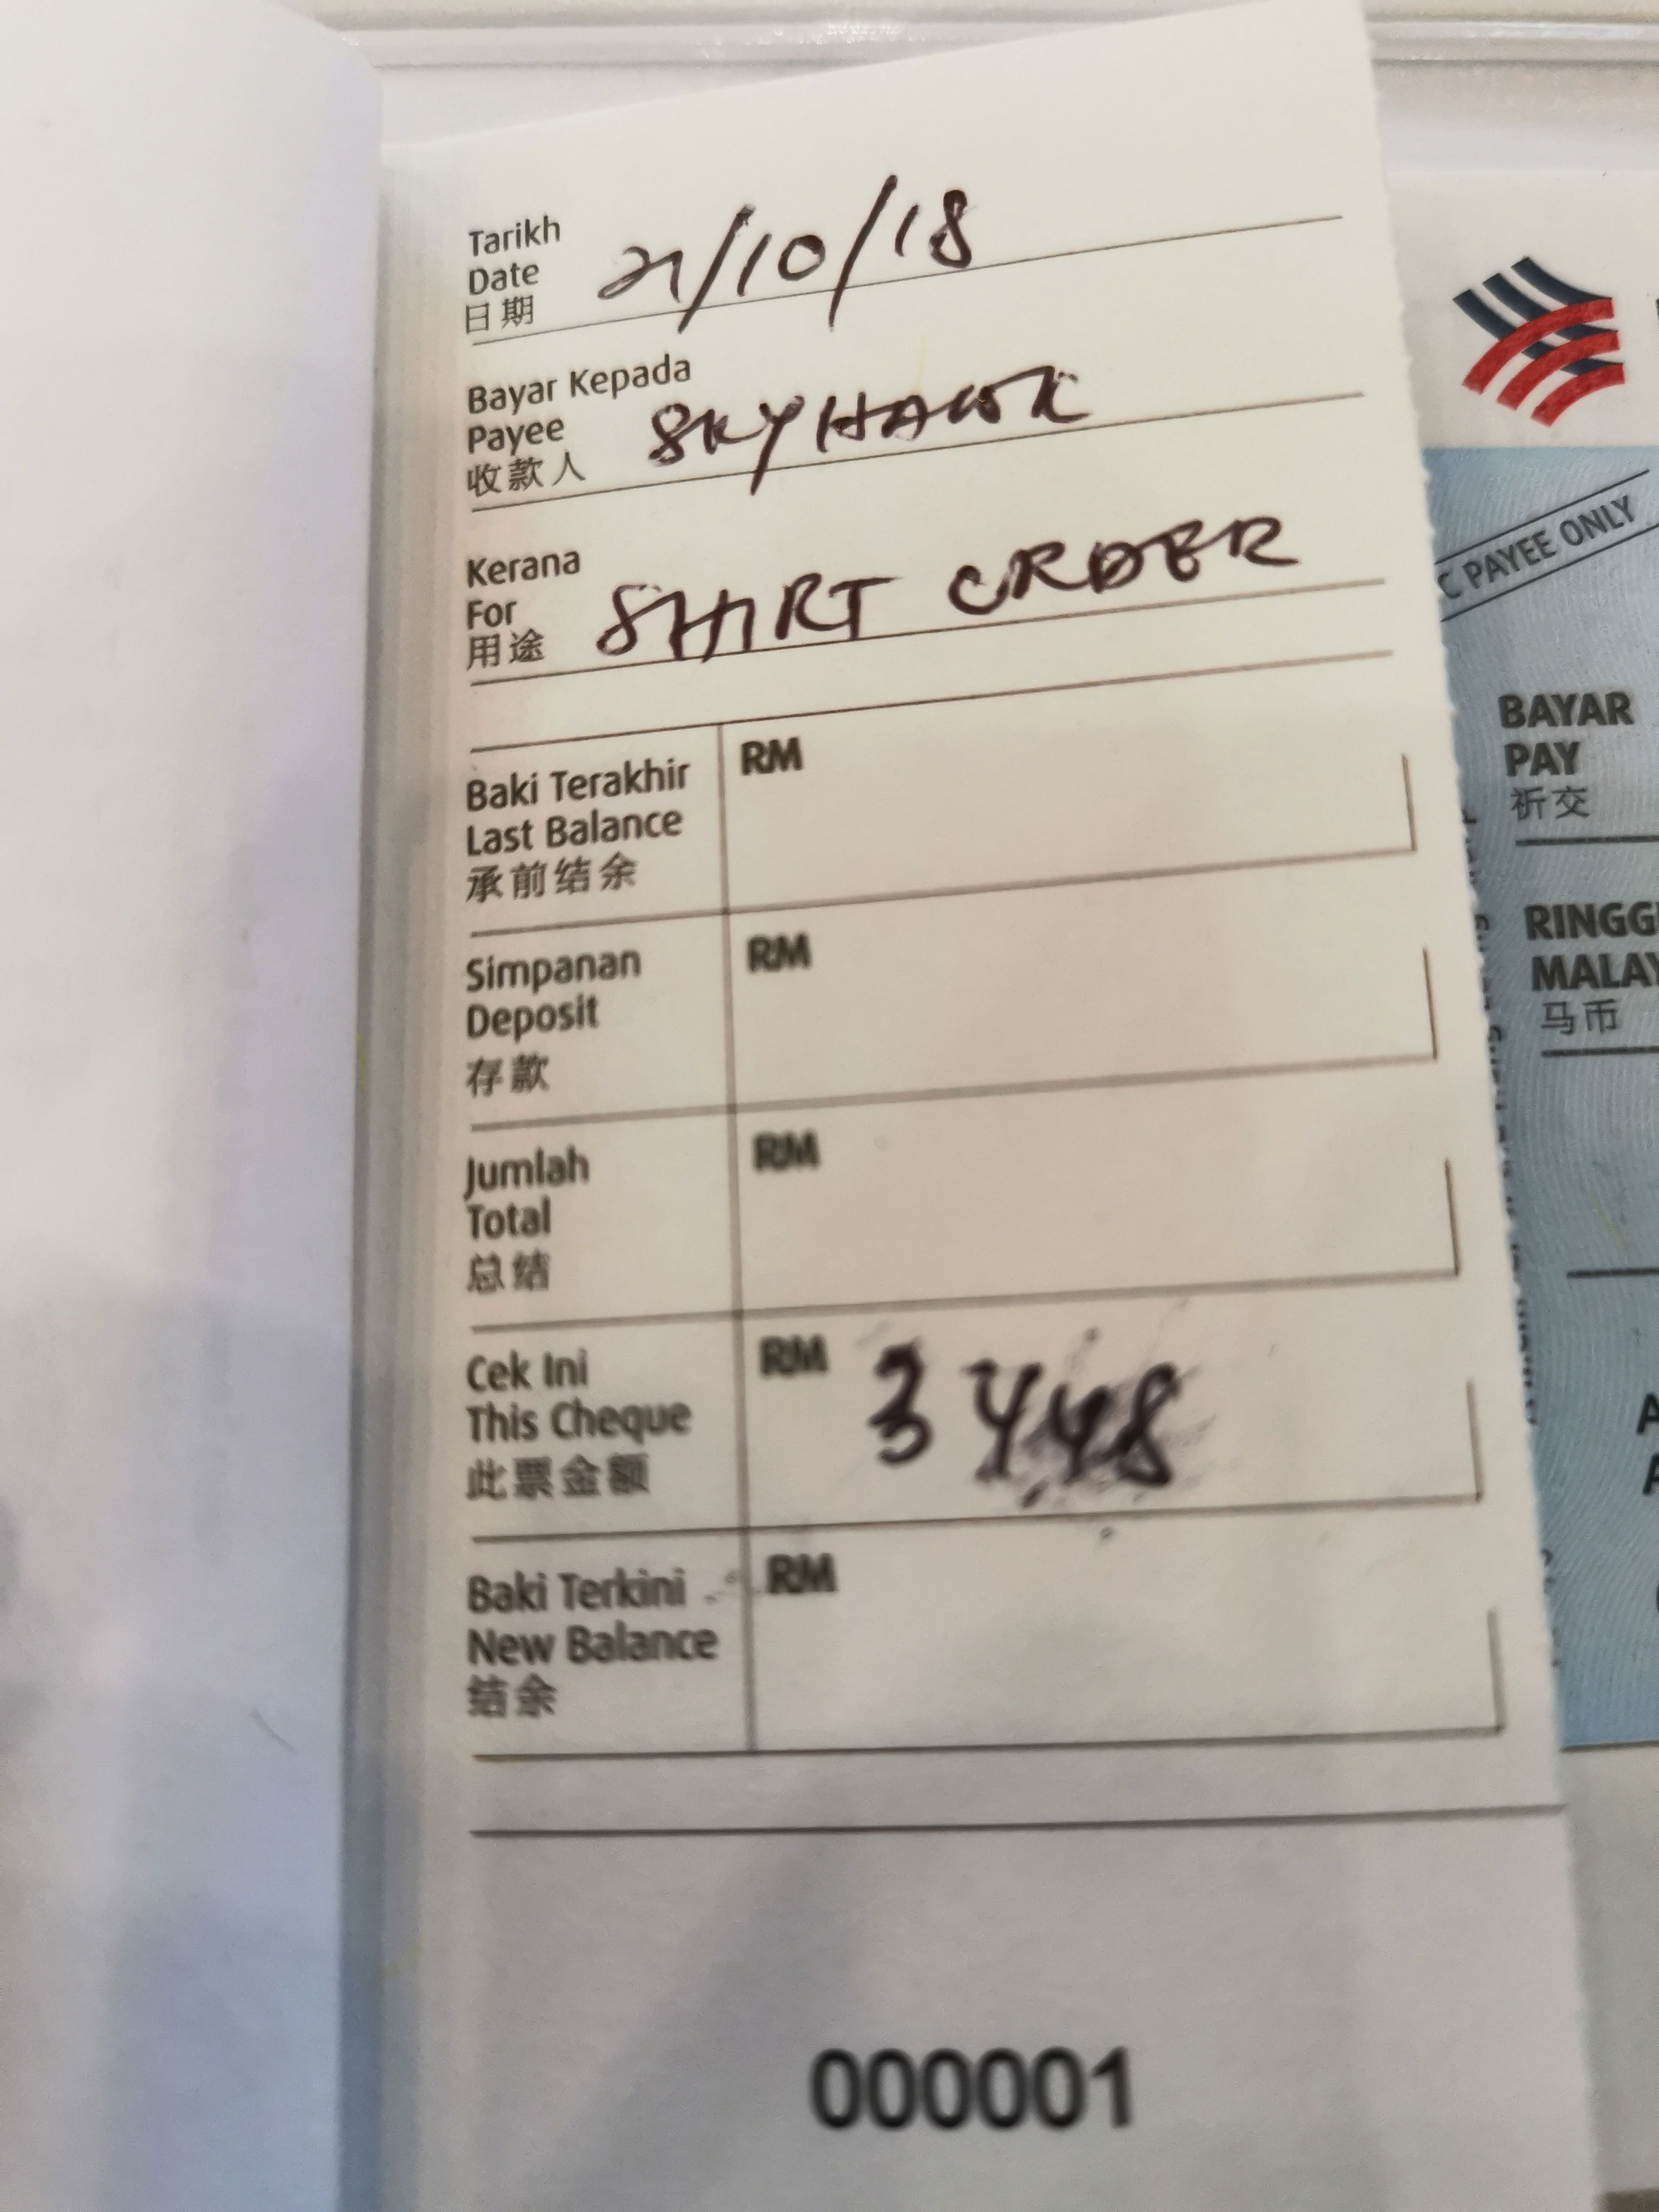 Tarikh
Date
日期
21/10/18
Bayar Kepada
Payee
收款人
SKYHAWK
Kerana
For
用途
SHIRT ORDER
Baki Terakhir
Last Balance
承前结余
RM
Simpanan
Deposit
存款
RM
Jumlah
Total
总结
RM
Cek Ini
This Cheque
此票金额
RM 3448
Baki Terkini
New Balance
结余
RM
000001
PAYEE ONLY
BAYAR
PAY
祈交
马币